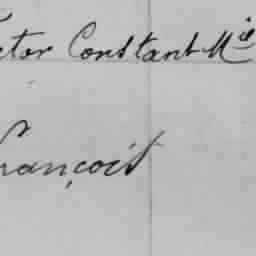 ctor Constant Mie
François